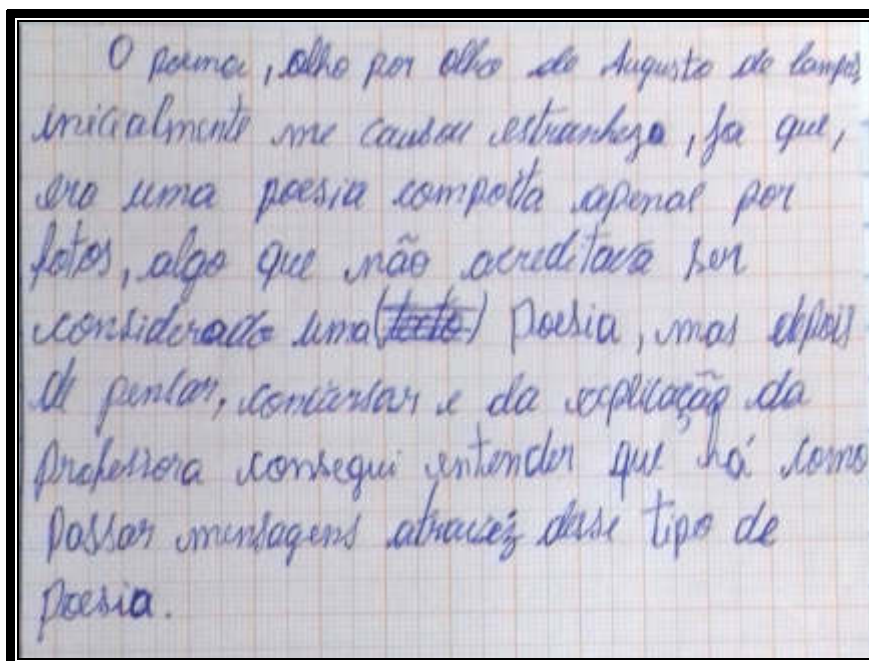 O poema, olho por olho de Augusto de Campos,
inicialmente me causou estranheza, ja que,
era uma poesia composta apenas por
fotos, algo que não acreditava ser
considerado uma (texto) Poesia, mas depois
de pensar, conversar e da explicação da
professora consegui entender que há como
passar mensagens atravez desse tipo de
poesia.